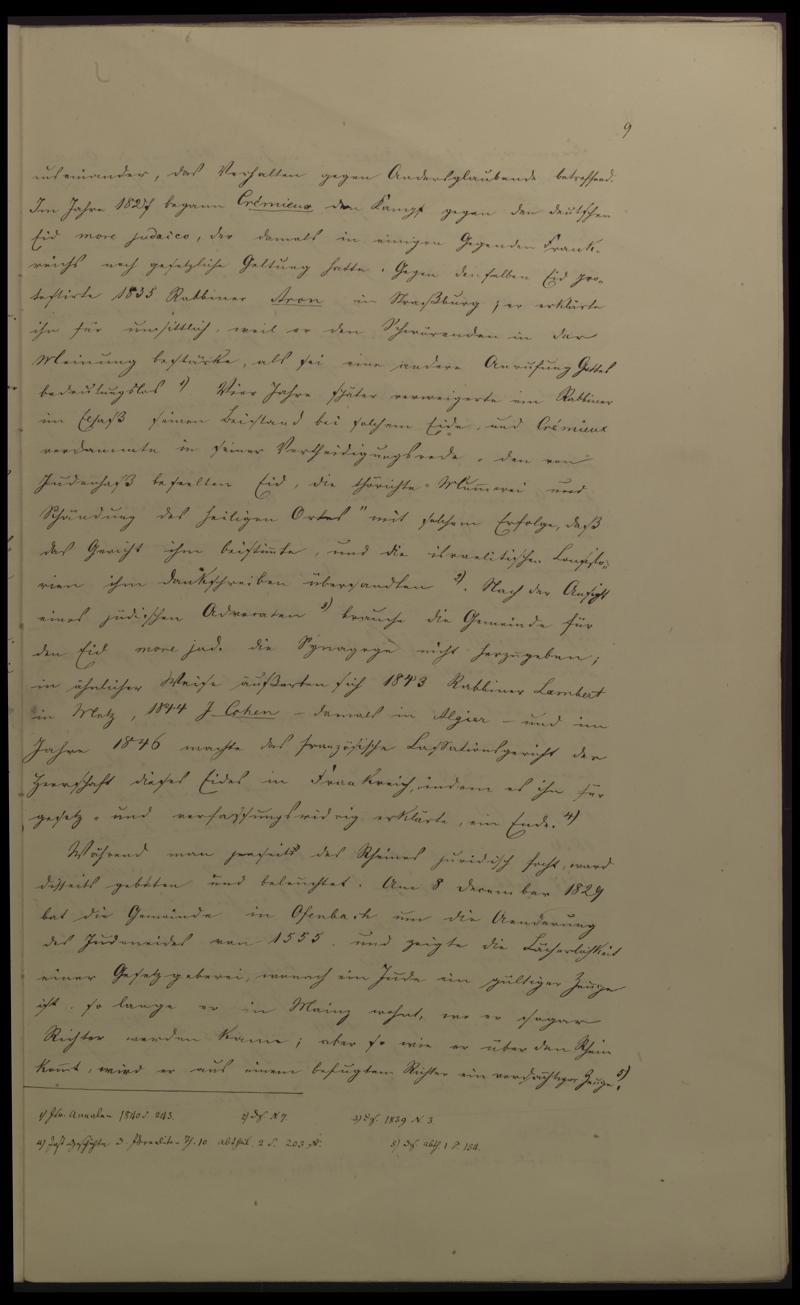 9
auseinander, das Verhalten gegen Andersglaubende betreffend.
Im Jahre 1827 begann Crémieux den Kampf gegen den deutschen
Eid more judaico, der damals in einigen Gegenden Frank-
reichs noch gesetzliche Geltung hatte. Gegen denselben Eid pro-
testirte 1835 Rabbiner Aron in Straßburg; er erklärte
ihn für unsittlich, weil er den Schwörenden in der
Meinung bestärke, als sei eine andere Anrufung Gottes
bedeutungslos 1) Vier Jahre später verweigerte ein Rabbiner
im Elsaß seinen Beistand bei solchem Eide, und Crémieux
verdammte in seiner Vertheidigungsrede „den von
Judenhaß beseelten Eid, die thörichte Mummerei und
Schändung des heiligen Ortes" mit solchem Erfolge, daß
das Gericht ihm beistimmte, und die israelitischen Consisto-
rien ihm Dankschreiben übersandten 2). Nach der Ansicht
eines jüdischen Advocaten 3) brauche die Gemeinde für
den Eid more jud. die Synagoge nicht herzugeben;
in ähnlicher Weise äußerten sich 1843 Rabbiner Lambert
in Metz, 1844 J. Cohen – damals in Algier – und im
Jahre 1846 machte das französische Cassationsgericht der
Herrschaft dieses Eides in Frankreich, indem es ihn für
gesetz- und verfassungswidrig erklärte, ein Ende. 4)
Während man jenseits des Rheines juridisch focht, ward
disseits gebeten und beleuchtet. Am 8 December 1829
bat die Gemeinde in Ofenbach um die Aenderung
des Judeneides von 1555. und zeigte die Lächerlichkeit
einer Gesetzgeberei, wonach ein Jude ein gültiger Zeuge
ist, so lange er in Mainz wohnt, wo er sogar
Richter werden kann; aber so wie er über den Rhein
kommt, wird er aus einem befugten Richter ein verdächtiger Zeuge 5).
1) Isr. Annalen 1840 S. 243. 2) Das. N 7. 3) Das. 1839 N. 3.
4) Jost Geschichte d. Israeliten Th. 10 Abtheil. 2 S. 203 5) Das. Abth. 1 S. 154.